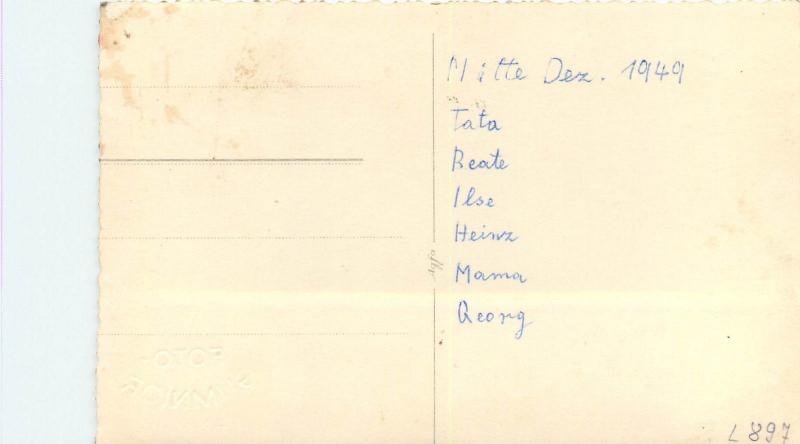 Mitte Dez. 1949
Tata
Beate
Ilse
Heinz
Mama
Georg
L 897
FOTO-